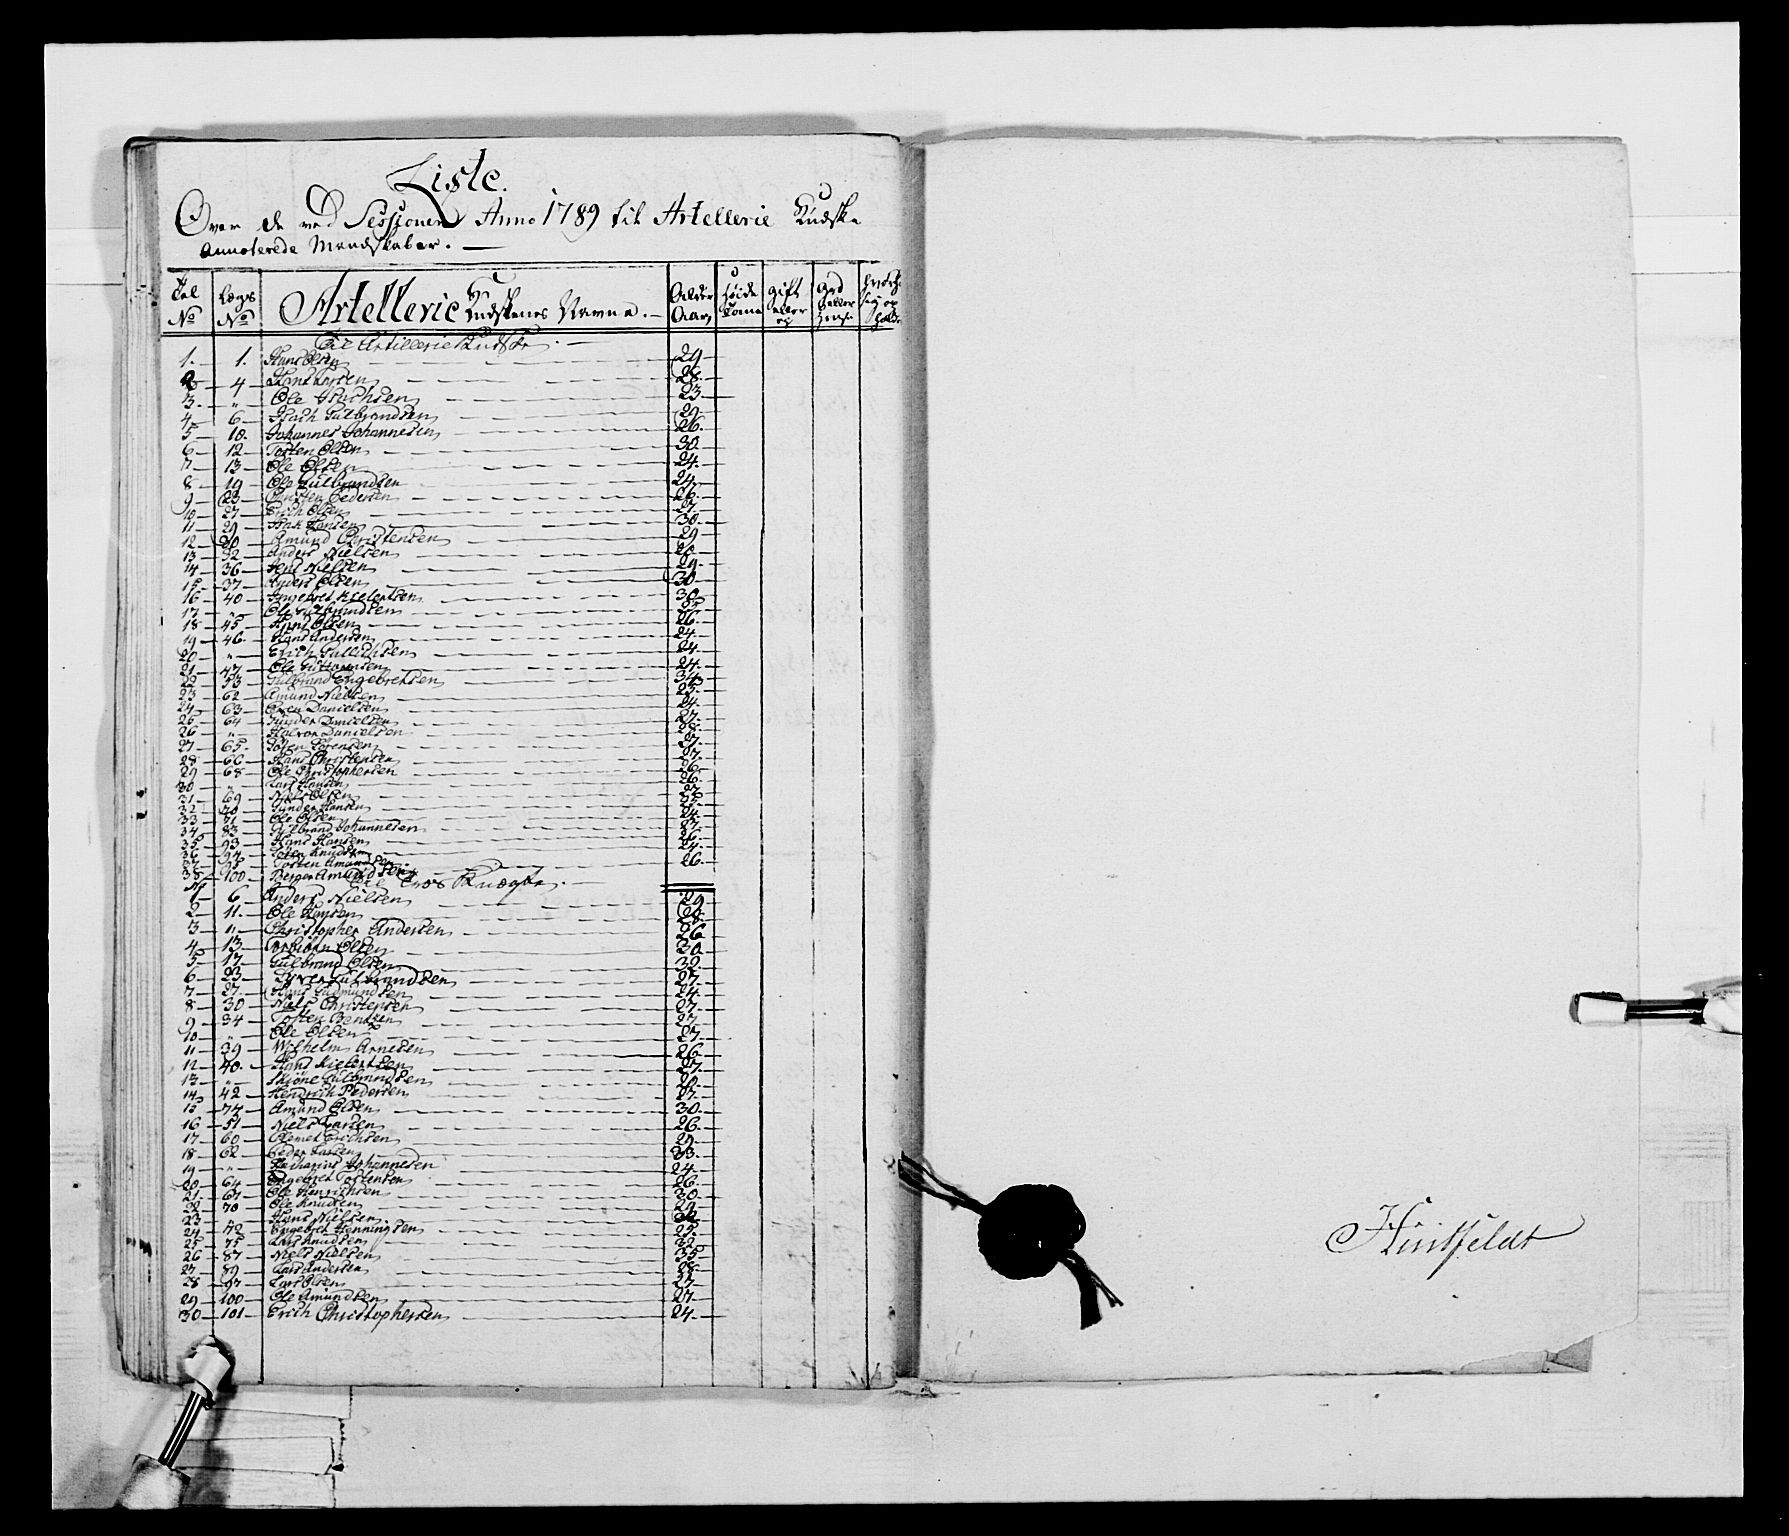 Liste.
Over de ved Sessionen Anno 1789 til Artellerie Kudske
Annoterede Mandskaber. —
Tal No Lægs No Artellerie Kudskenes Navne. — Alder Aar Høide Tome gift eller ej
Til Artillerie Kudske
1. 1. Hans Olsen 29
2 4 Hans Larsen 28
3. " Ole Isachsen 23
4 6 Isach Gulbrandsen 29
5 10. Johannes Johannesen 26.
6 12 Tosten Olsen 30
7 13 Ole Olsen 24.
8 19 Ole Gulbrandsen 24
9 23 Christen Pedersen 26.
10 27 Erich Olsen 27
11 29 Isak Hansen 30.
12 30 Amund Christensen 29
13 32 Anders Nielsen 28
14 36 Jens Nielsen 29
15 37 Anders Olsen 30
16 40 Ingebret Kielertsen 30
17 " Ole Gulbrandsen 25
18 45 Hans Olsen 26
19 46 Hans Andersen 24
20 " Erich Gullichsen 24
21 47 Ole Guttormsen 24
22 53 Gulbrand Engebretsen 34
23 62 Amund Nielsen 23
24 63 Even Danielsen 24
26 64 Gunder Danielsen 27
26 " Halvor Danielsen 28
27 65. Søren Sørensen 27
28 66 Hans Christensen 27
29 68 Ole Christophersen 26
30 " Lars Hansen 26
31 69 Niels Olsen 27
32 70 Gunder Hansen 25
33 71 Ole Olsen 24
34 83 Gulbrand Johannesen 27
35 93 Hans Hansen 26
36 94 Knudsen 24
37 95 Tosten Amundsen 26
38 100 Berger Amundsen
Til Tros Knægte.
1 6 Anders Nielsen 29
2 11. Ole Hansen 28
3 " Christopher Andersen 26
4 13 Torbiørn Olsen 30
5 17 Gulbrand Olsen 32
6 23 Syver Gulbrandsen 27
7 27 Hans Gudmundsen 24
8 30 Niels Christensen 27
9 34 Tosten Bentsen 27
10 " Ole Olsen 27
11 39 Wilhelm Arnesen 26
12 40. Hans Kielertsen 27
13 " Gulbrandsen 28
14 42 Hendrich Pedersen 27
15 74 Amund Olsen 30
16 51 Niels Larsen 26
17 60 Clemet Erichsen 29
18 62 Peder Larsen 33
19 " Zacharias Johannesen 24
20 64 Engebret Tostensen 26
21 67 Ole Henrichsen 30
22 70 Ole Knudsen 29
23 " Hans Nielsen
24 72 Engebret Henningsen 25
25 75 Lars Knudsen 32
26 87 Niels Nielsen 35
27 89 Lars Andersen 28
28 97 Lars Olsen 27
29 100 Ole Amundsen 27
30 101 Erich Christophersen 24
Huitfeldt